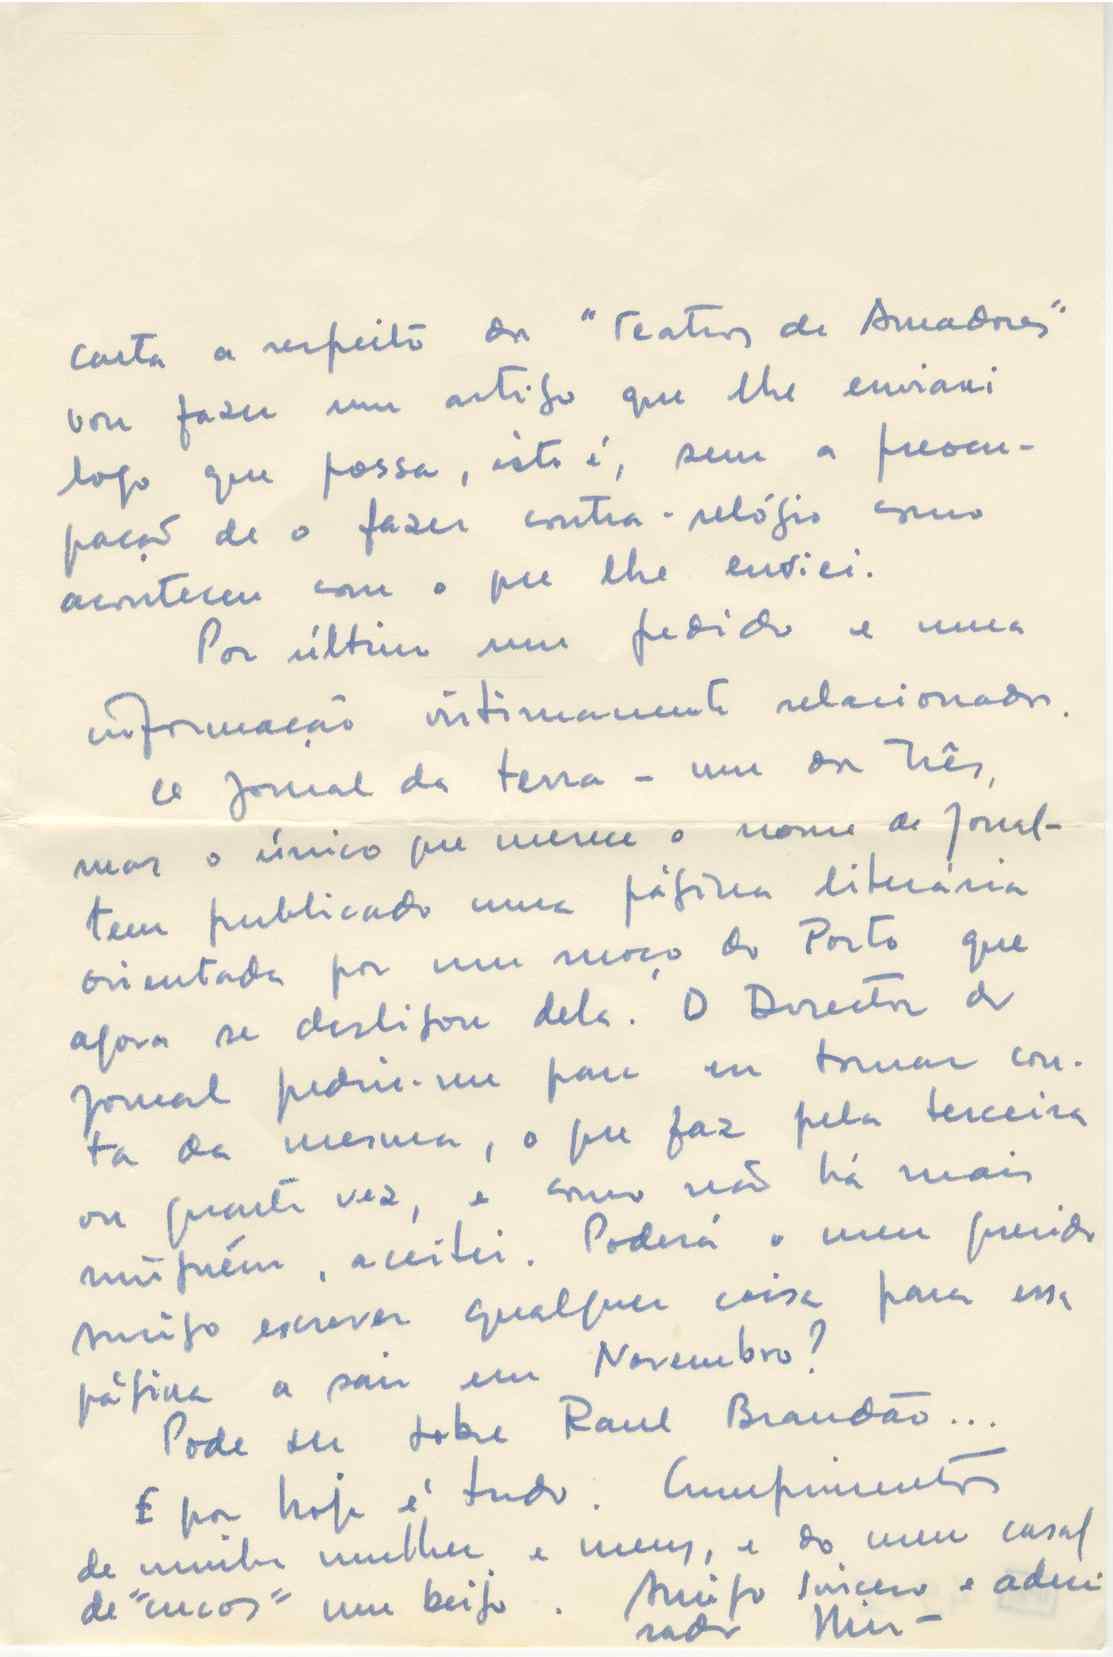 carta a respeito dos "Teatros de Amadores"
vou fazer um artigo que lhe enviarei
logo que possa, isto é, sem a preocu-
pação de o fazer contra-relógio como
aconteceu com o que lhe enviei.
Por último um pedido e uma
informação intimamente relacionados.
O Jornal da terra - um dos três,
mas o único que merece o nome de Jornal -
tem publicado uma página literária
orientada por um moço do Porto que
agora se desligou dela. O Director do
Jornal pediu-me para eu tomar con-
ta da mesma, o que faz pela terceira
ou quarta vez, e como não há mais
ninguém, aceitei. Poderá o meu querido
Amigo escrever qualquer coisa para essa
página a sair em Novembro?
Pode ser sobre Raul Brandão...
E por hoje é tudo. Cumprimentos
de minha mulher e meus, e do meu casal
de "cucos" um beijo. Amigo sincero e admi
rador